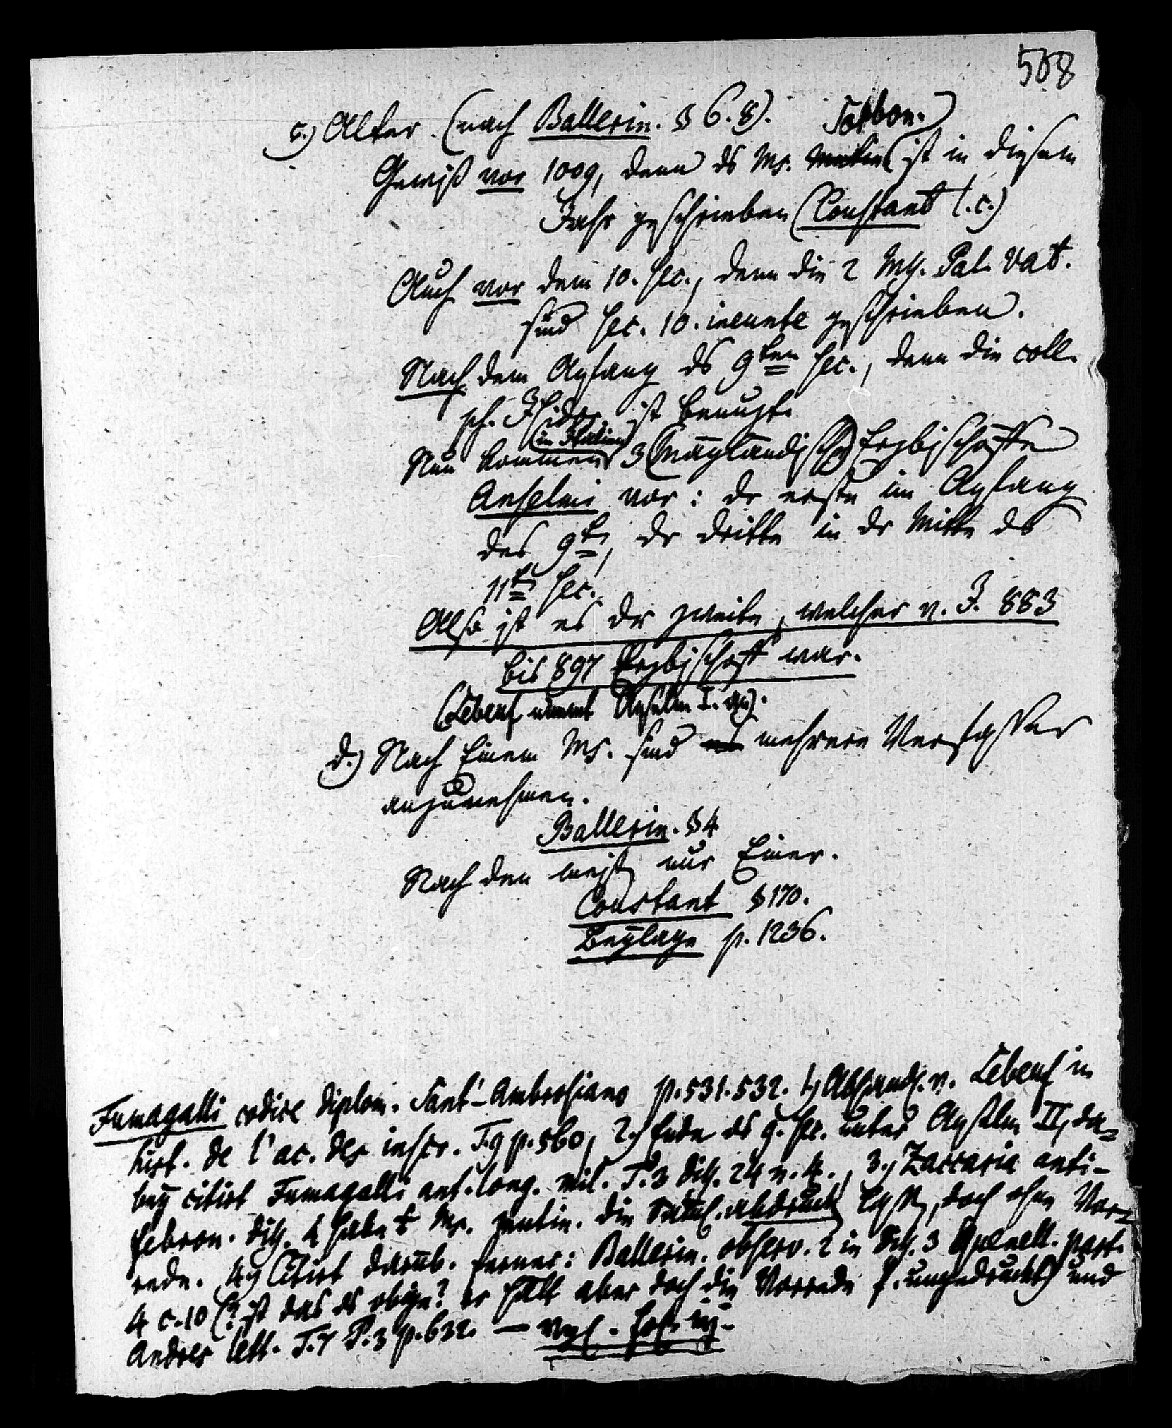 508
c.) Alter. (nach Ballerin. § 6. 8).
Gewiß vor 1009, denn ds Ms. Sorbon. ist in diesem
Jahr geschrieben (Constant l.c.)
Auch vor dem 10. sec., denn die 2 Mss. Pal. Vat.
sind sec. 10. ineunte geschrieben.
Nach dem Anfang ds 9ten sec., denn die coll.
ps. Isidor. ist benuzt.
Nun kommen (in Italien) 3 (mayländische) Erzbischöffe
Anselmi vor: dr erste im Anfang
des 9t, dr dritte in dr Mitte ds
11t sec.
Also ist es dr zweite, welcher v. J. 883
bis 897 Erzbischoff war.
(Lebeuf nimmt Anselm I. an).
d.) Nach Einem Ms. sind mehrere Verfasser
anzunehmen.
Ballerin. § 4
Nach den meist nur Einer.
Constant § 170.
Beylage p. 1236.
Fumagalli codice diplom. Sant-Ambrosiano p. 531. 532. 1) Abhandl. v. Lebeuf in
hist. de l'ac. des inscr. T. 9 p. 360, 2.) Ende ds 9. sec. unter Anselm II, da=
bey citirt Fumagalli ant. long. mil. T. 3 diss. 24 n. 4., 3.) Zaccaria anti-
febron. diss. Ms. mutin. die abdruck doch ohne Vor=
rede. 4.) Citirt darüb. ferner: Ballerin. observ. 2 in diss. 3 Quesnell. part.
4 c. 10 (? ist das ds obige? er hält aber doch die Vorrede f. ungedruckt) und
Andres lett. T. 1 P. 3 p. 632. —